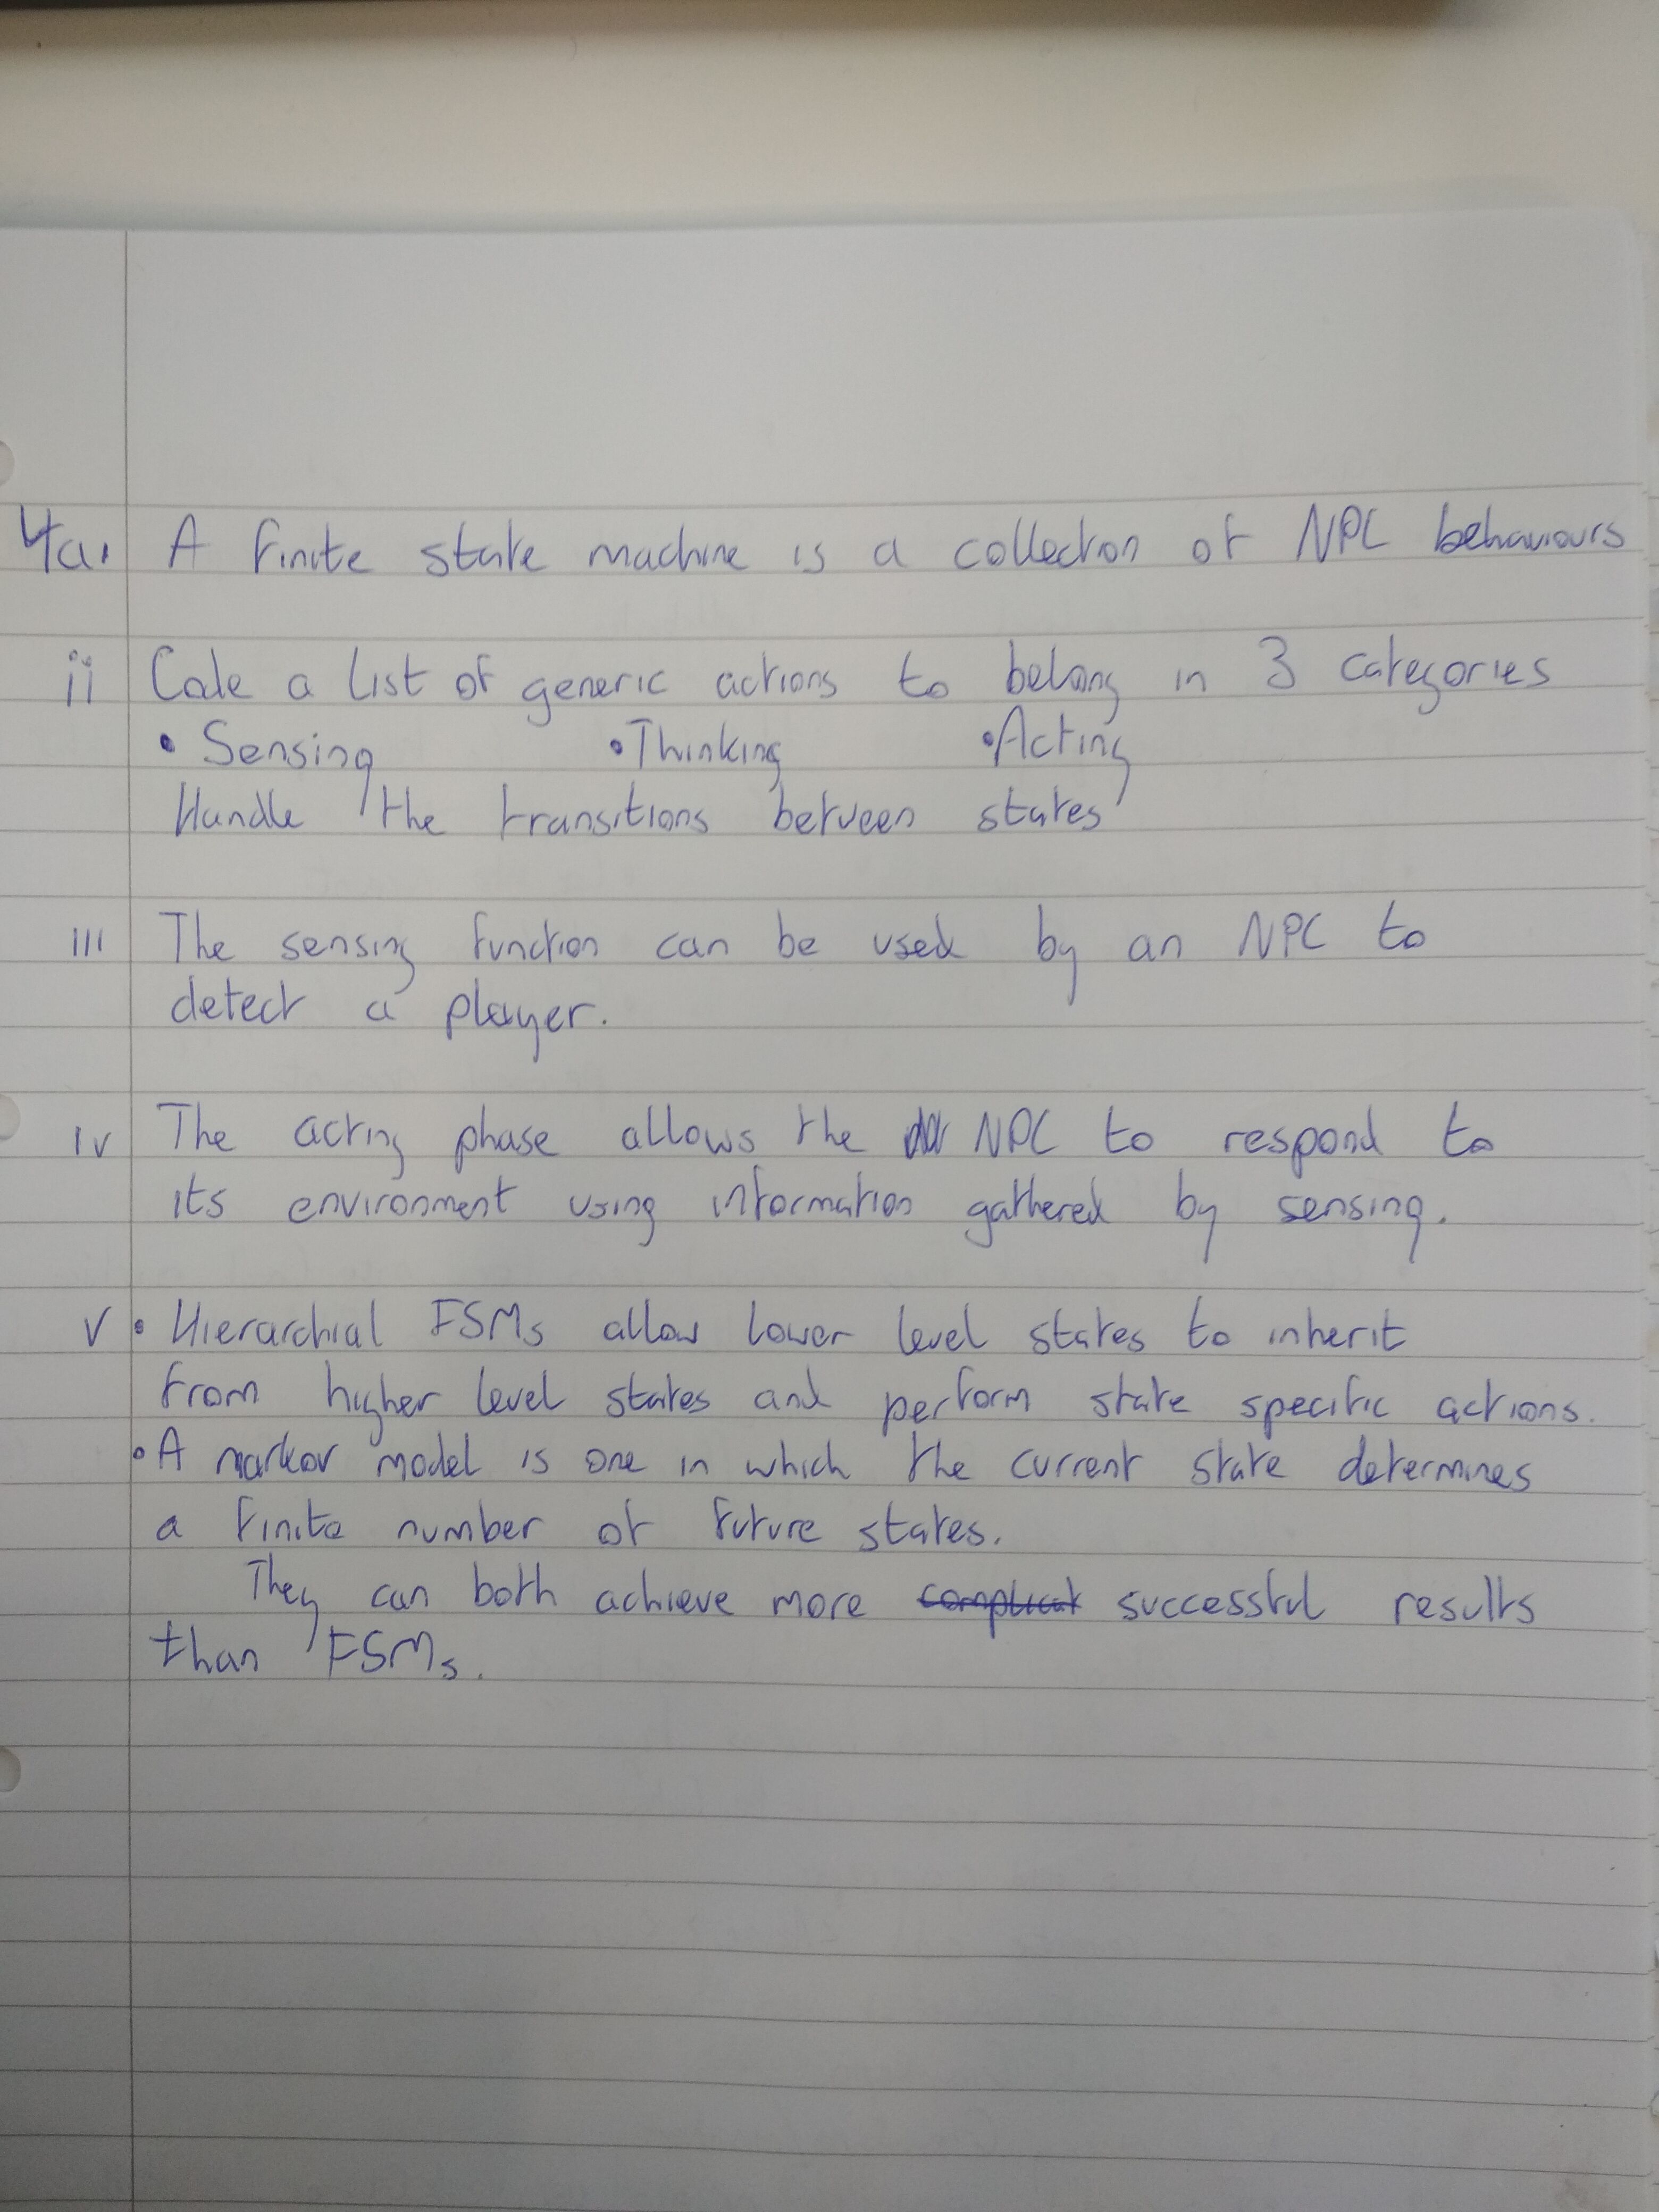 4ai A finite state machine is a collection of NPC behaviours
ii Code a list of generic actions to belong in 3 categories
• Sensing • Thinking • Acting
Handle the transitions between states
iii The sensing function can be used by an NPC to
detect a player.
iv The acting phase allows the NPC to respond to
its environment using information gathered by sensing.
v • Hierarchial FSMs allow lower level states to inherit
from higher level states and perform state specific actions.
• A markov model is one in which the current state determines
a finite number of future states.
They can both achieve more complicat successful results
than FSMs.